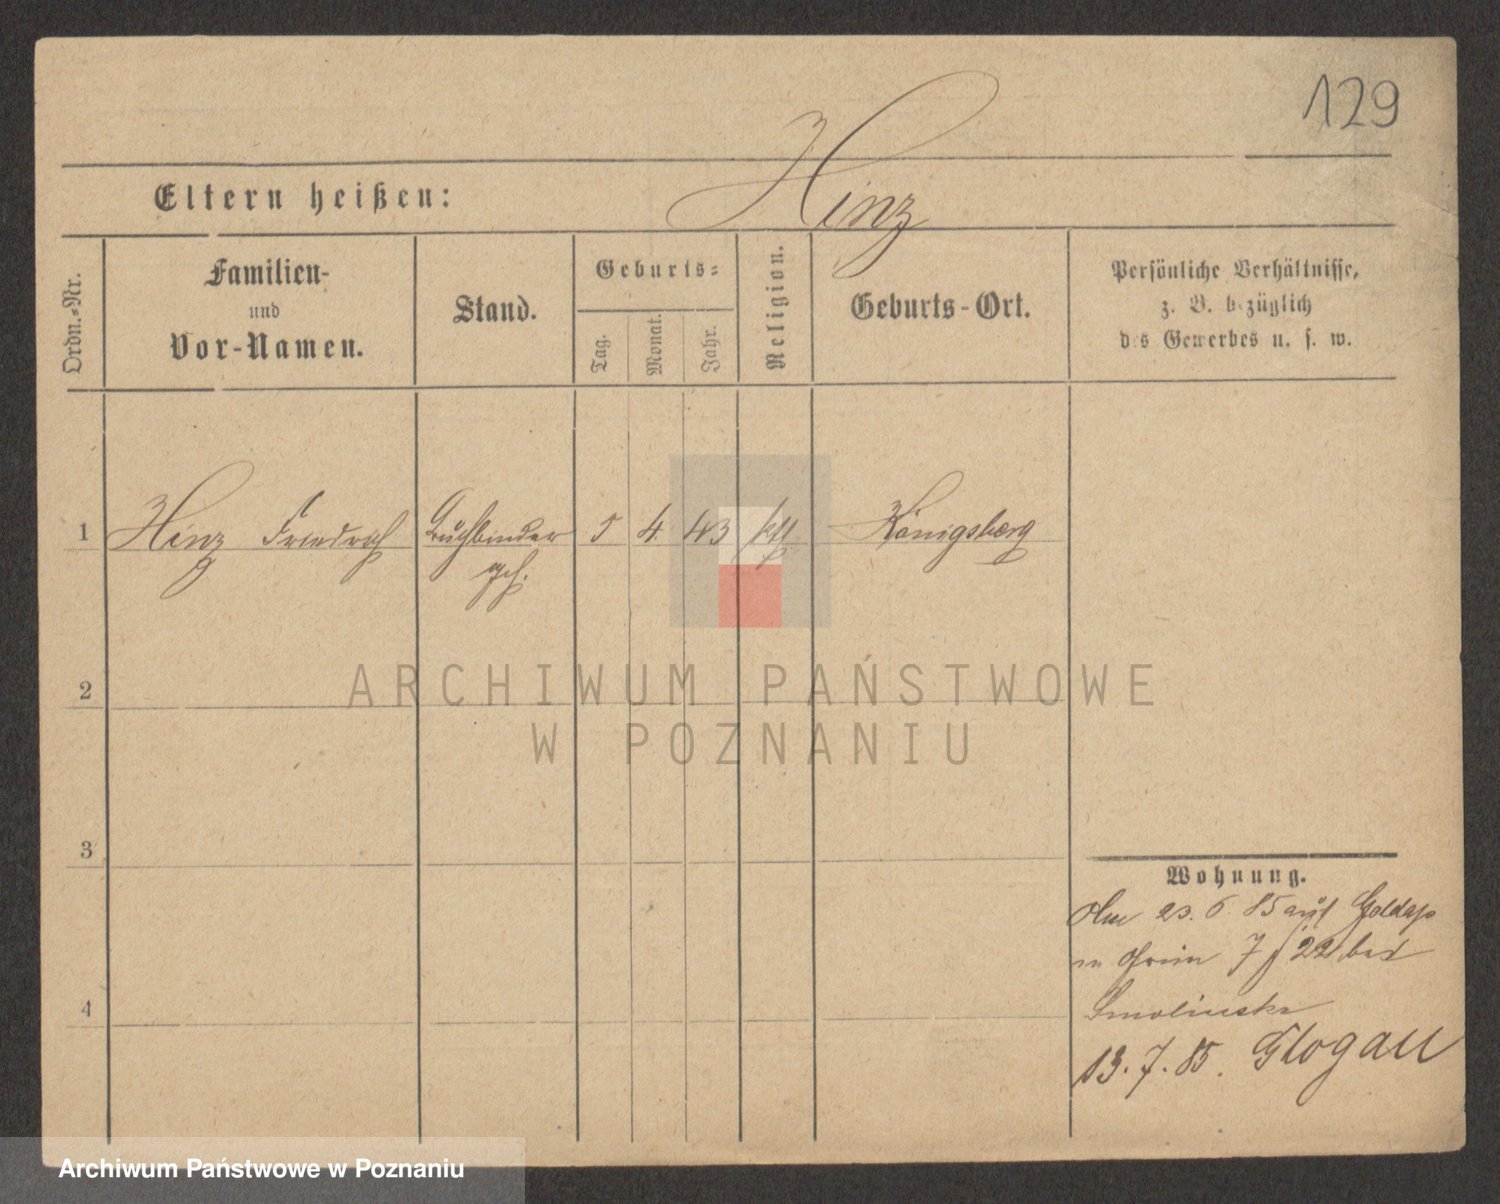 129
Hinz
Eltern heißen:
Ordn.=Nr.
Familien-
und
Vor-Namen.
Stand.
Geburts=
Tag.
Monat.
Jahr.
Religion.
Geburts-Ort.
Persönliche Verhältnisse,
z. B. bezüglich
des Gewerbes u. s. w.
1 Hinz Friedrich Buchbinder 5 4 43 kth Königsberg
geh.
2
3
4
Wohnung.
23. 6 85 auf Goldap
7 22 bei
Smolinska
13. 7. 85. Glogau
ARCHIWUM PAŃSTWOWE
W POZNANIU
Archiwum Państwowe w Poznaniu